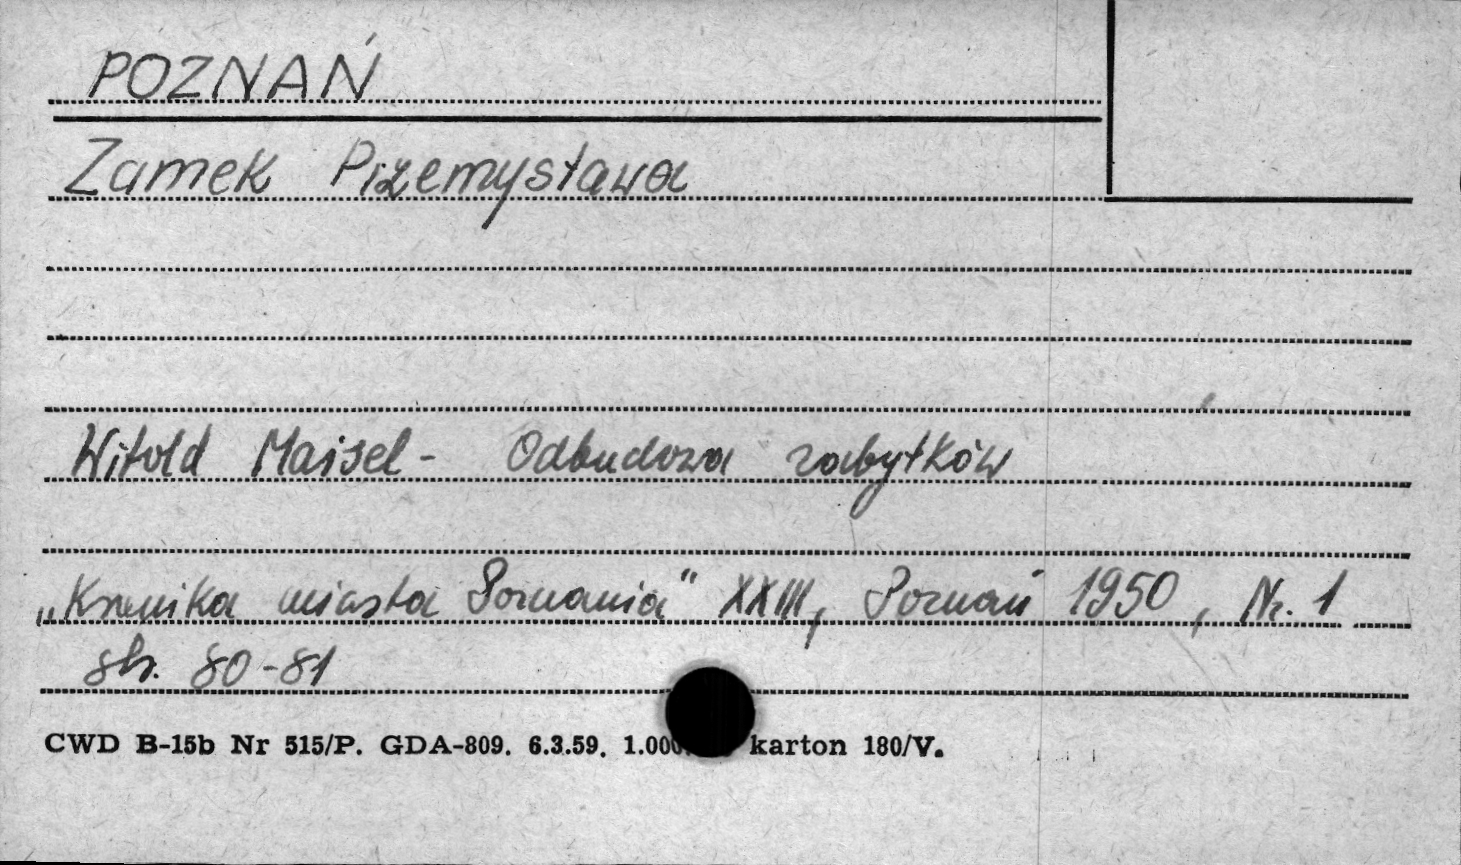 POZNAŃ
Zamek Przemysława
Witold Maisel - Odbudowa zabytków
„Kronika miasta Poznania" XXIII, Poznań 1950, Nr. 1
str. 80-81
CWD B-15b Nr 515/P. GDA-809. 6.3.59. 1.000 karton 180/V.